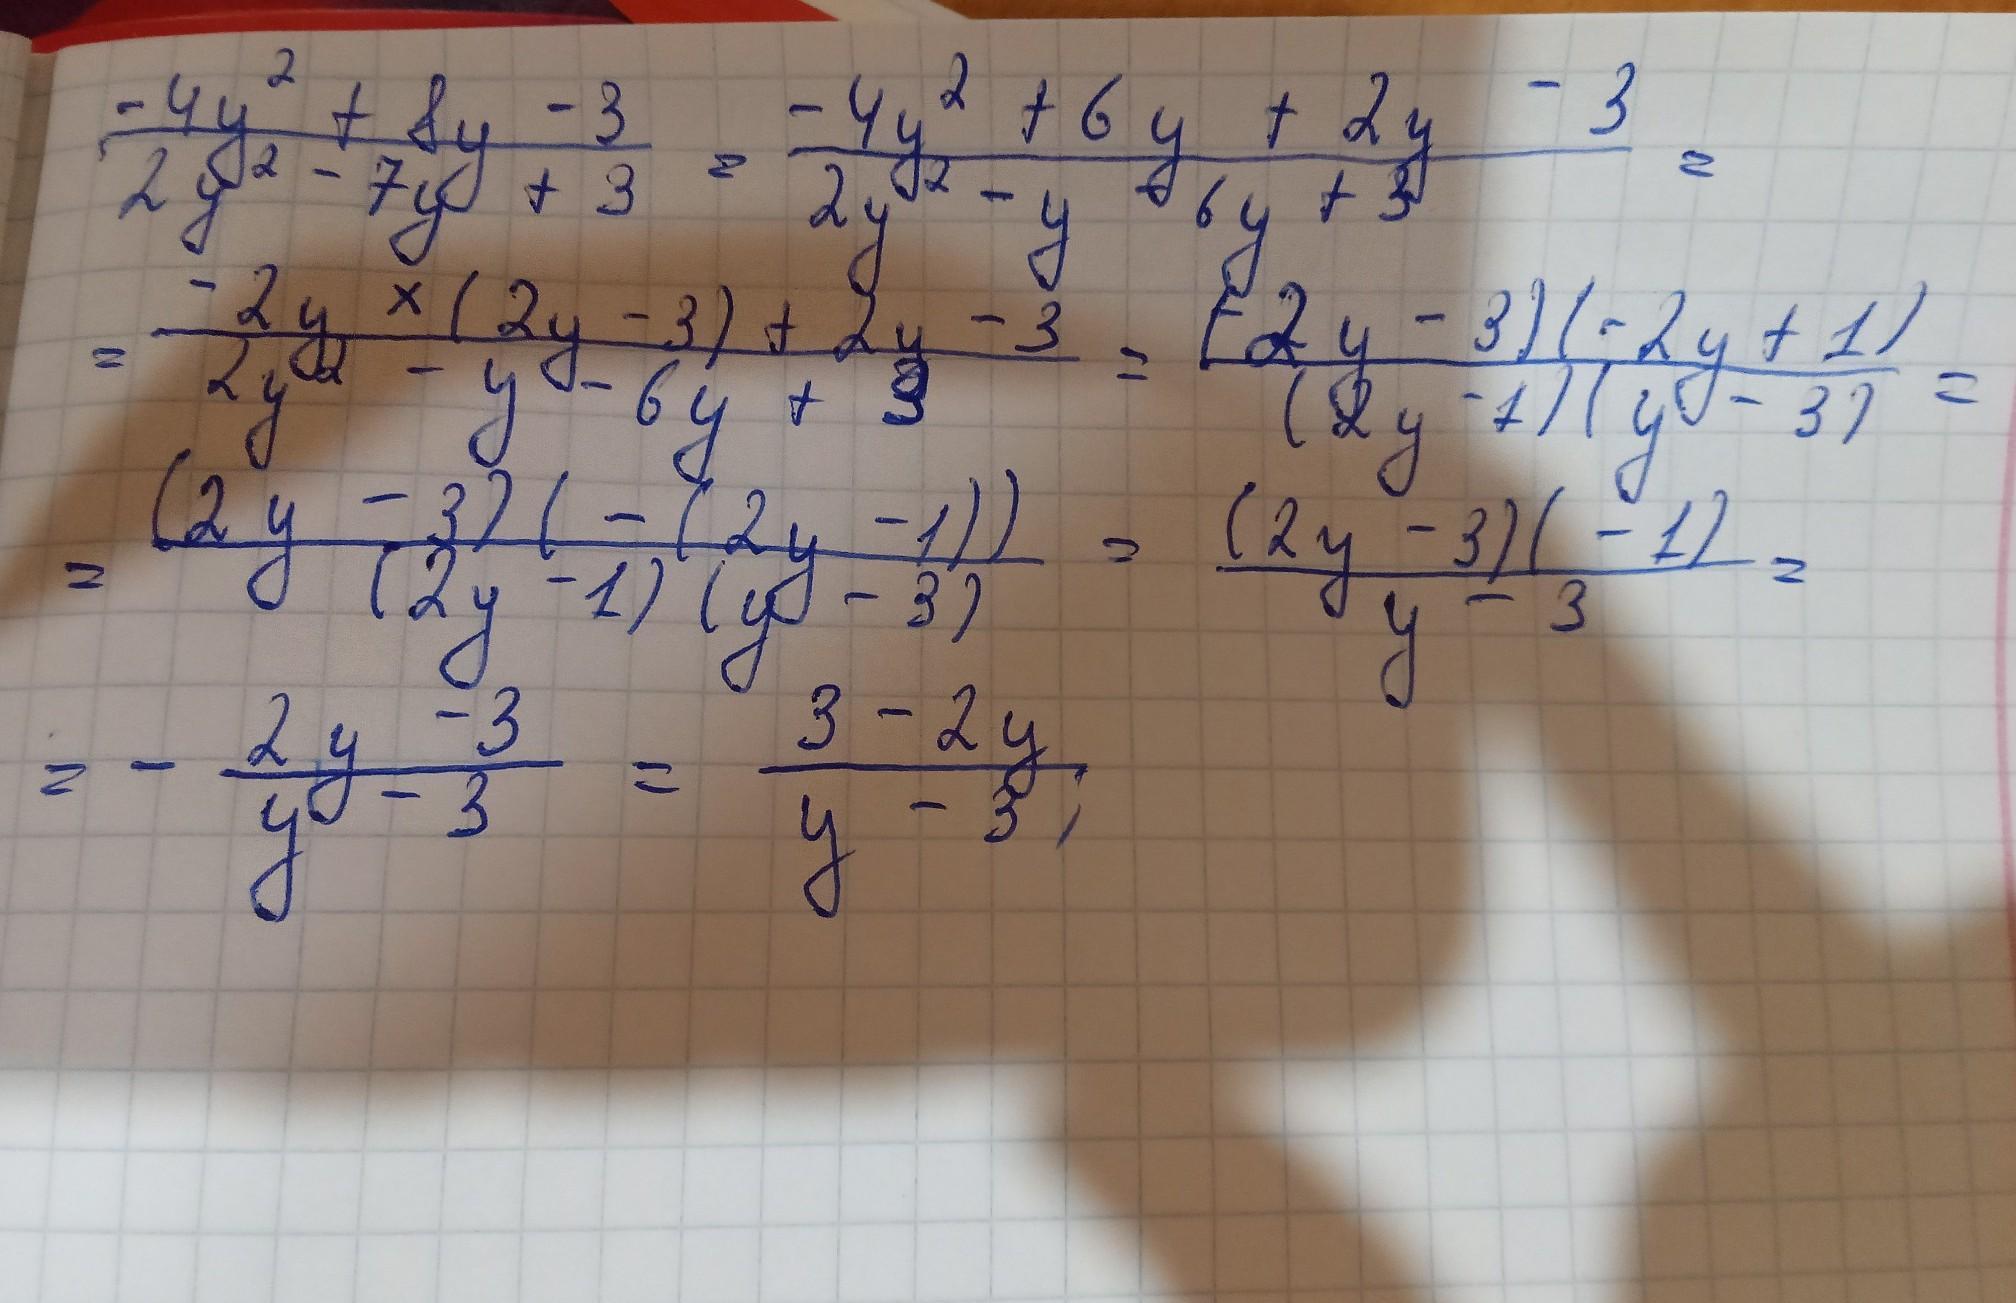 (-4y² + 8y - 3)/(2y² - 7y + 3) = (-4y² + 6y + 2y - 3)/(2y² - y - 6y + 3) =
= (-2y × (2y - 3) + 2y - 3)/(2y² - y - 6y + 3) = ((2y - 3)(-2y + 1))/((2y - 1)(y - 3)) =
= ((2y - 3)(-(2y - 1)))/((2y - 1)(y - 3)) = ((2y - 3)(-1))/(y - 3) =
= - (2y - 3)/(y - 3) = (3 - 2y)/(y - 3);